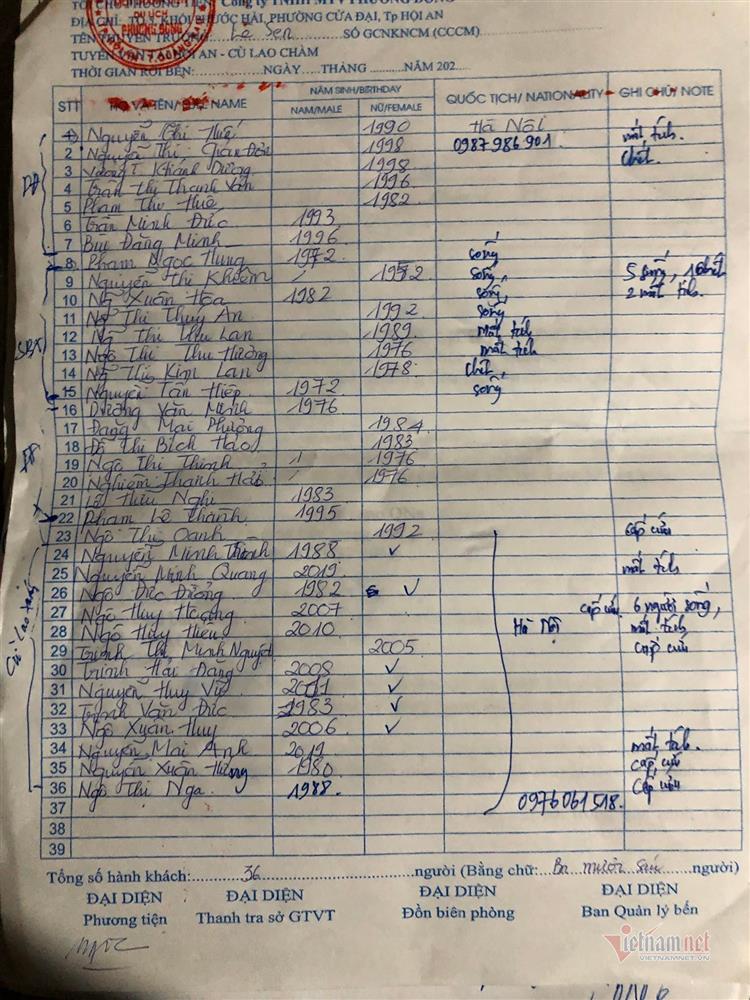 TÊN PHƯƠNG TIỆN: Công ty TNHH MTV PHƯƠNG ĐÔNG
ĐỊA CHỈ: TỔ 9, KHỐI PHƯỚC HẢI, PHƯỜNG CỬA ĐẠI, Tp HỘI AN
TÊN THUYỀN TRƯỞNG: Lê Sen SỐ GCNKNCM (CCCM)
TUYẾN VẬN TẢI: HỘI AN - CÙ LAO CHÀM
THỜI GIAN RỜI BẾN: NGÀY THÁNG NĂM 202
DU LỊCH
PHƯƠNG ĐÔNG
STT HỌ VÀ TÊN/ NAME NĂM SINH/BIRTHDAY QUỐC TỊCH/ NATIONALITY GHI CHÚ/ NOTE
NAM/MALE NỮ/FEMALE
1 Nguyễn Thị Huế 1990 Hà Nội mất tích
2 Nguyễn Thị 1998 0987986901 chết
3 Vương T Khánh Dương 1998
4 Trần Thị Thanh Vân 1996
5 Phạm Thu Huê 1982
6 Trần Minh Đức 1993
7 Bùi Đăng Minh 1996
8 Phạm Ngọc Hùng 1972 sống
9 Nguyễn Thị Khiêm / 1972 sống, 5 sống, 1 chết
10 Ng Xuân Hòa 1982 sống, 2 mất tích.
11 Ng Thị Thúy An 1992 sống
12 Ng Thị Thu Lan 1989 Mất tích
13 Ngô Thị Thu Hường 1976 mất tích
14 Ng Thị Kim Lan 1978 chết,
15 Nguyễn Tấn Hiệp 1972 sống
16 Dương Văn Minh 1976
17 Đặng Mai Phương 1984
18 Đỗ Thị Bích Hảo 1983
19 Ngô Thị Thinh / 1976
20 Nghiêm Thanh Hải / 1976
21 Lê Hữu Nghi 1983
22 Phạm Lê Thành 1995
23 Ngô Thị Oanh 1992 cấp cứu
24 Nguyễn Minh Thành 1988 ✓
25 Nguyễn Minh Quang 2019 mất tích
26 Ngô Đức Đường 1982 ✓
27 Ngô Huy Hoàng 2007 cấp cứu 6 người sống,
28 Ngô Huy Hiếu 2010 Hà Nội mất tích
29 Trịnh Thị Minh Nguyệt 2005 cấp cứu
30 Trịnh Hải Đăng 2008 ✓
31 Nguyễn Huy Vũ 2011 ✓
32 Trịnh Văn Đức 1983 ✓
33 Ngô Xuân Huy 2006 ✓
34 Nguyễn Mai Anh 2019 mất tích.
35 Nguyễn Xuân Hưng 1980 cấp cứu
36 Ngô Thị Nga 1988. Cấp cứu
37 0976061518.
38
39
Cù Lao Xanh
Tổng số hành khách: 36 người (Bằng chữ: Ba mươi sáu người)
ĐẠI DIỆN ĐẠI DIỆN ĐẠI DIỆN ĐẠI DIỆN
Phương tiện Thanh tra sở GTVT Đồn biên phòng Ban Quản lý bến
Vietnamnet
VIETNAMNET.VN